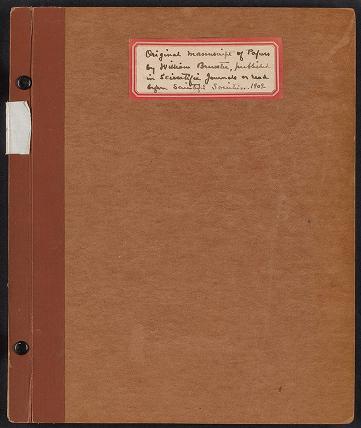 Original Manuscript of Papers
by William Brewster, published
in Scientific Journals or read
before Scientific Societies. 1902